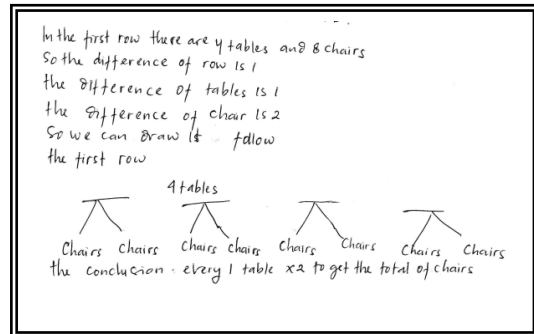 In the first row there are 4 tables and 8 chairs
So the difference of row is 1
the difference of tables is 1
the difference of chair is 2
So we can draw is follow
the first row
4 tables
Chairs Chairs Chairs Chairs Chairs Chairs Chairs Chairs
the conclusion : every 1 table x2 to get the total of chairs